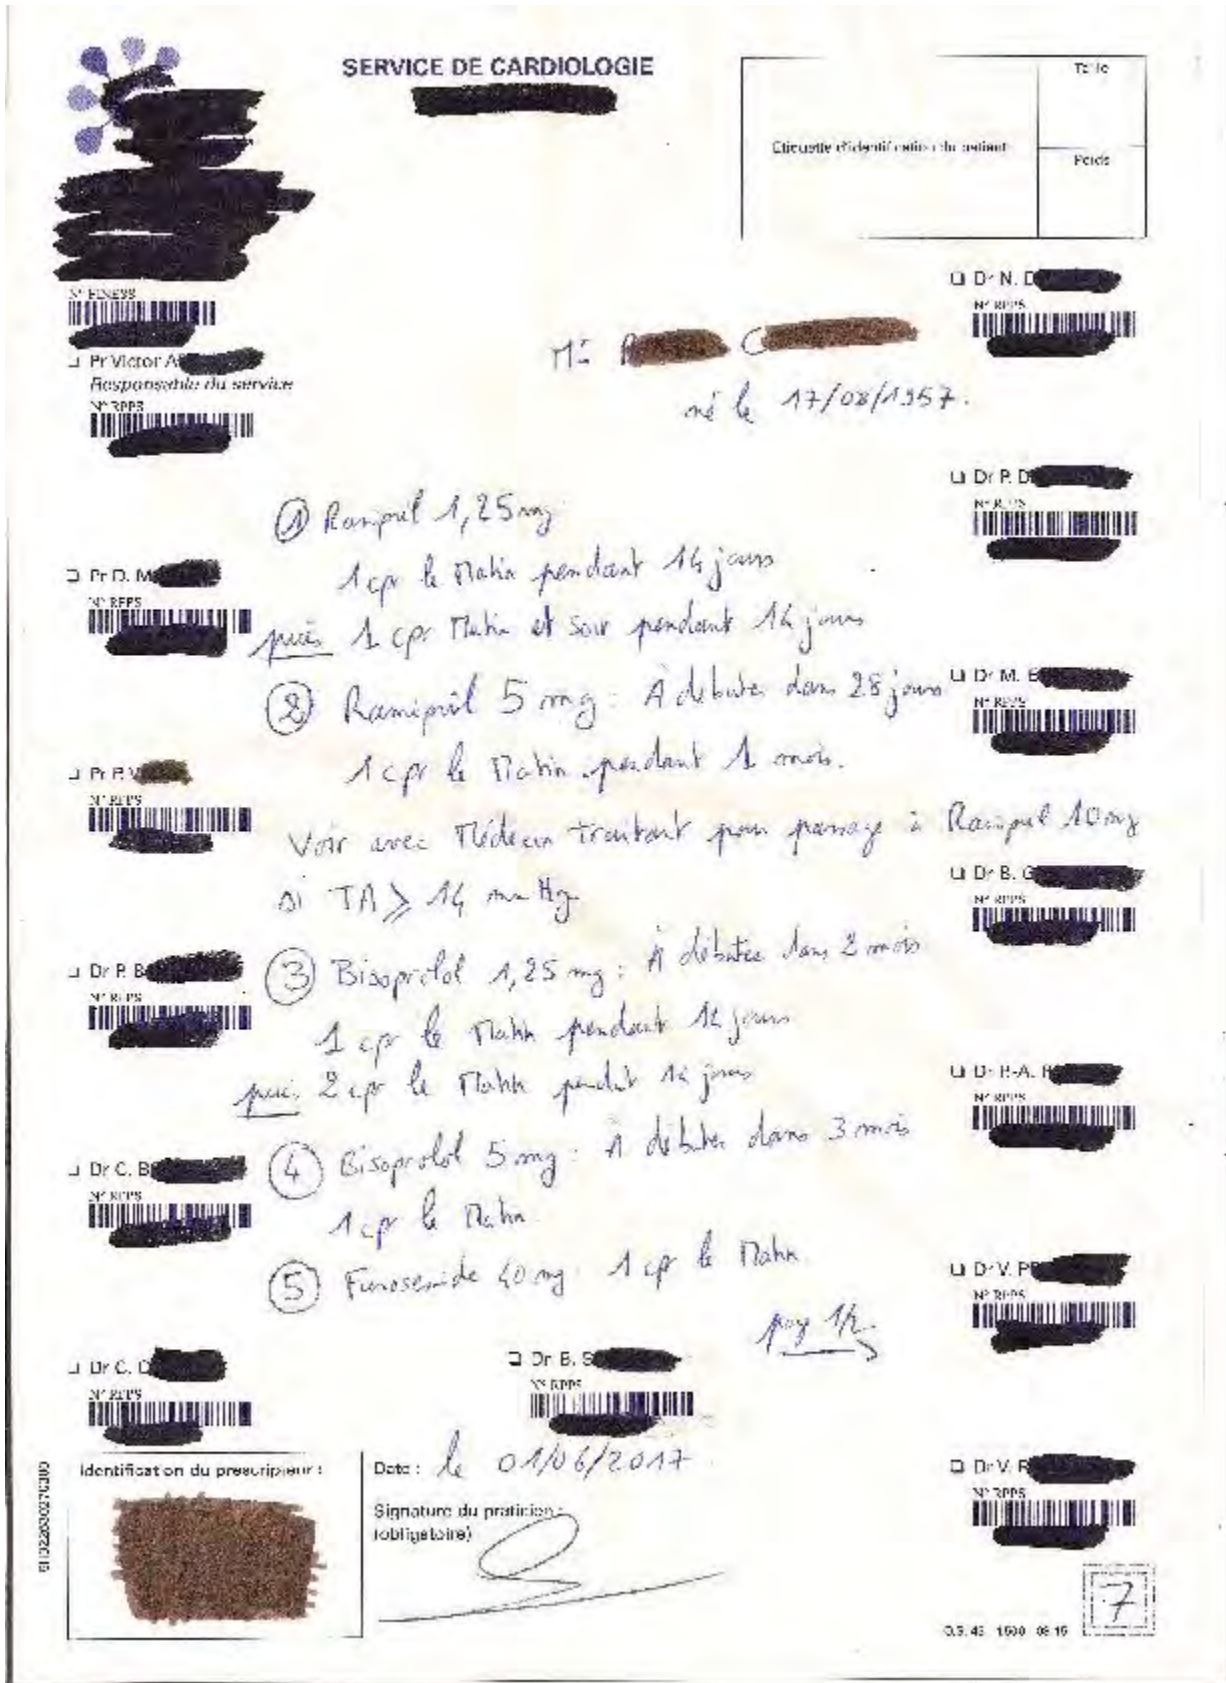 SERVICE DE CARDIOLOGIE
Taille
Etiquette d'identification du patient
Poids
N° FINESS
❑ Pr Victor A
Responsable du service
N° RPPS
❑ Dr N. D
N° RPPS
Mr R C
né le 17/08/1957.
❑ Dr P. D
N° RPPS
① Ramipril 1,25 mg
❑ Pr D. M
N° RPPS
1 cpr le Matin pendant 14 jours
puis 1 cpr Matin et Soir pendant 14 jours
❑ Dr M. B
N° RPPS
② Ramipril 5 mg : A débuter dans 28 jours
❑ Pr P. V
N° RPPS
1 cpr le Matin pendant 1 mois.
Voir avec Médecin traitant pour passage à Ramipril 10 mg
❑ Dr B. G
N° RPPS
si TA ⩾ 14 mm Hg
❑ Dr P. B
N° RPPS
③ Bisoprolol 1,25 mg : A débuter dans 2 mois
1 cpr le Matin pendant 14 jours
puis 2 cpr le Matin pendant 14 jours
❑ Dr P.-A.
N° RPPS
❑ Dr C. B
N° RPPS
④ Bisoprolol 5 mg : A débuter dans 3 mois
1 cpr le Matin
⑤ Furosemide 40 mg 1 cpr le Matin
❑ Dr V. P
N° RPPS
page 1/2
❑ Dr C. D
N° RPPS
❑ Dr B. S
N° RPPS
Identification du prescripteur :
Date : le 01/06/2017
Signature du praticien :
(obligatoire)
❑ Dr V. R
N° RPPS
7